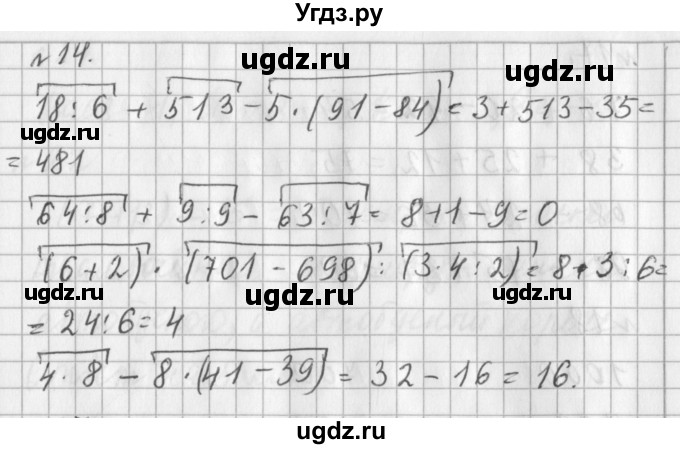 Угдз.ру
ugdz.ru
№ 14.
ugdz.ru
18 : 6 + 513 - 5 · (91 - 84) = 3 + 513 - 35 =
ugdz.ru
ugdz.ru
= 481
64 : 8 + 9 : 9 - 63 : 7 = 8 + 1 - 9 = 0
ugdz.ru
(6 + 2) · (701 - 698) : (3 · 4 : 2) = 8 · 3 : 6 =
ugdz.ru
ugdz.ru
ugdz.ru
= 24 : 6 = 4
4 · 8 - 8 · (41 - 39) = 32 - 16 = 16.
ugdz.ru
ugdz.ru
ugdz.ru